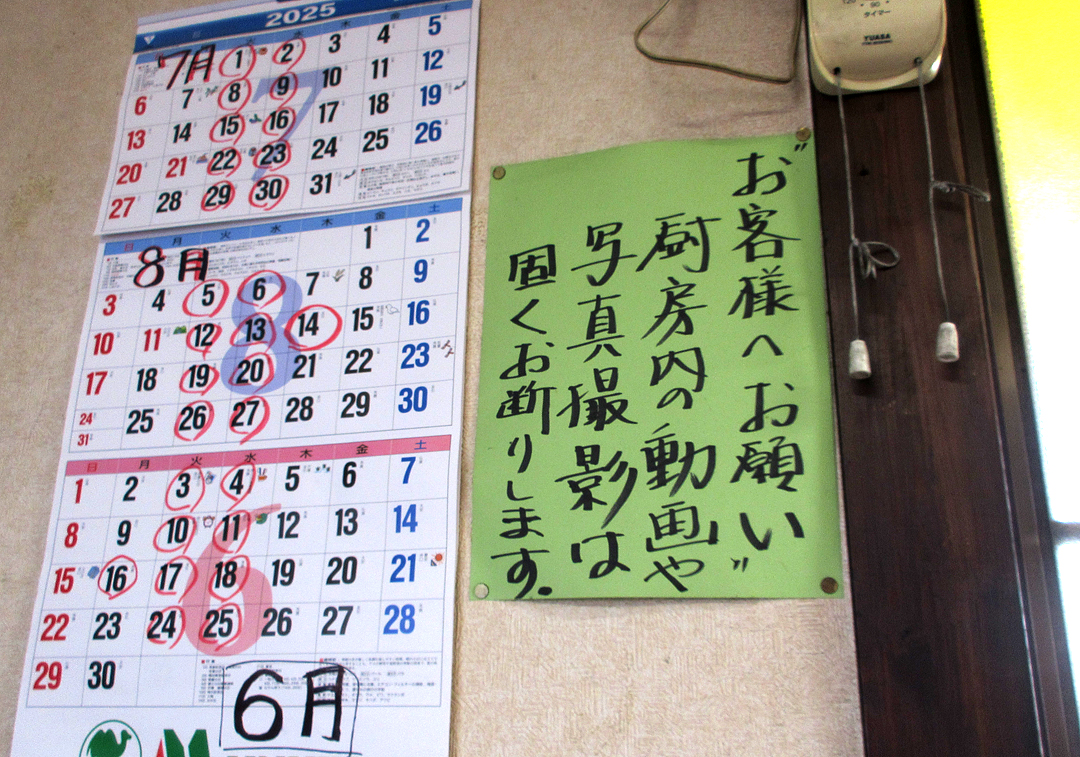 2025
木 金 土
7月 1 2 3 4 5
6 7 8 9 10 11 12
13 14 15 16 17 18 19
20 21 22 23 24 25 26
27 28 29 30 31
日 月 火 水 木 金 土
8月 1 2
3 4 5 6 7 8 9
10 11 12 13 14 15 16
17 18 19 20 21 22 23
24 25 26 27 28 29 30
31
日 月 火 水 木 金 土
1 2 3 4 5 6 7
8 9 10 11 12 13 14
15 16 17 18 19 20 21
22 23 24 25 26 27 28
29 30
6月
"お客様へお願い"
厨房内の動画や
写真撮影は
固くお断りします.
120 90
タイマー
YUASA